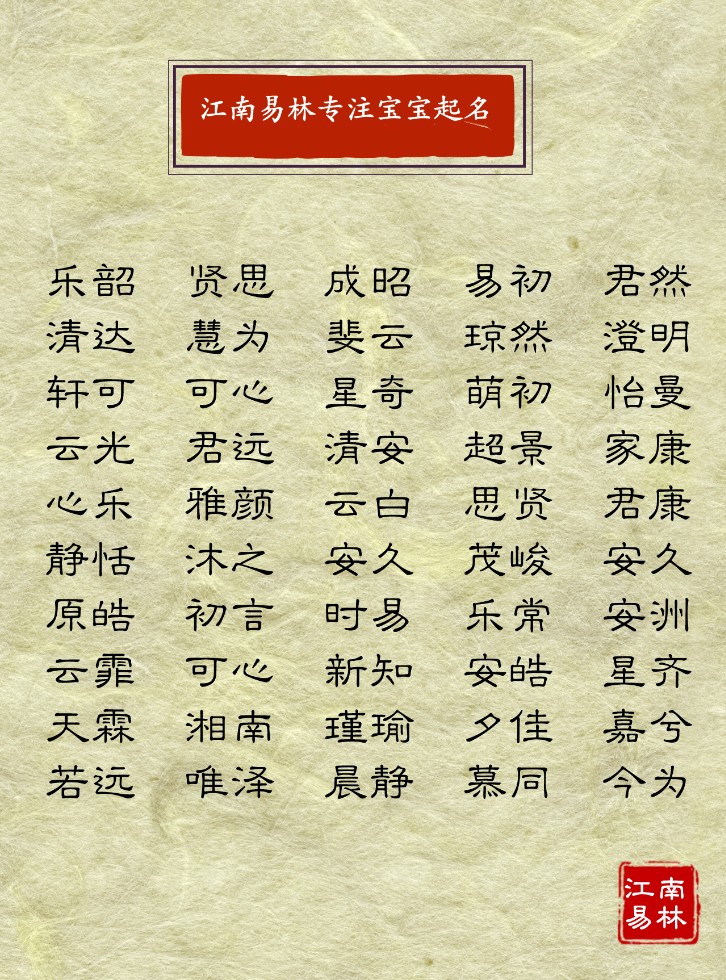 江南易林专注宝宝起名
乐韶 贤思 成昭 易初 君然
清达 慧为 斐云 琼然 澄明
轩可 可心 星奇 萌初 怡曼
云光 君远 清安 超景 家康
心乐 雅颜 云白 思贤 君康
静恬 沐之 安久 茂峻 安久
原皓 初言 时易 乐常 安洲
云霏 可心 新知 安皓 星齐
天霖 湘南 瑾瑜 夕佳 嘉兮
若远 唯泽 晨静 慕同 今为
江南
易林